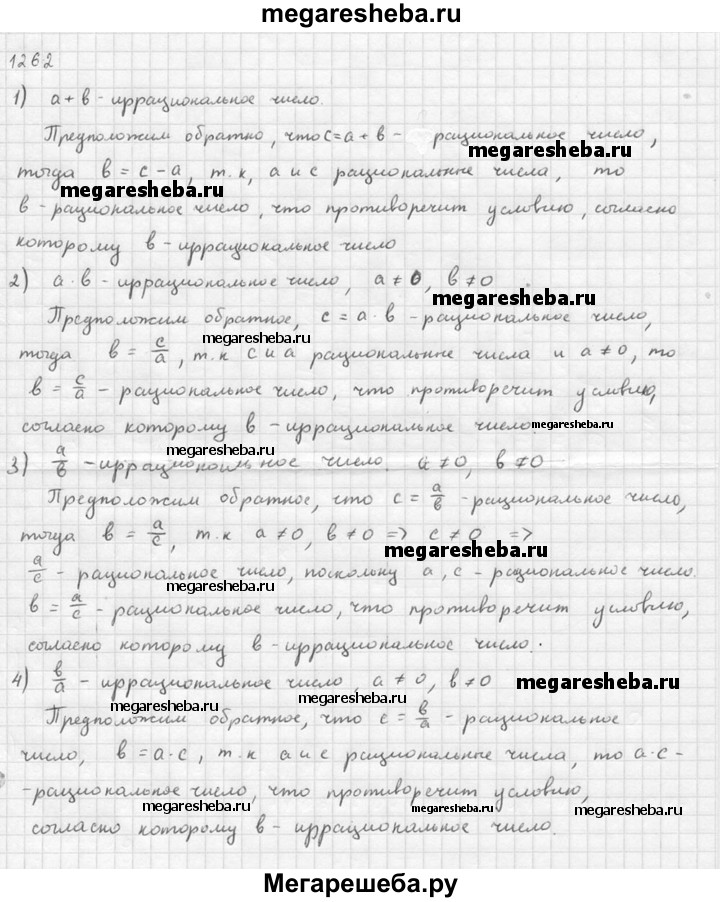 megaresheba.ru
1262
1) a + b - иррациональное число.
Предположим обратно, что c = a + b - рациональное число,
megaresheba.ru
тогда b = c - a, т.к, a и c рациональные числа, то
megaresheba.ru
b - рациональное число, что противоречит условию, согласно
которому b - иррациональное число
2) a · b - иррациональное число, a ≠ 0, b ≠ 0
megaresheba.ru
Предположим обратное, c = a · b - рациональное число,
megaresheba.ru
тогда b = c/a, т.к c и a рациональные числа и a ≠ 0, то
b = c/a - рациональное число, что противоречит условию,
согласно которому b - иррациональное число.
megaresheba.ru
megaresheba.ru
3) a/b - иррациональное число. a ≠ 0, b ≠ 0
Предположим обратное, что c = a/b - рациональное число,
тогда b = a/c, т.к a ≠ 0, b ≠ 0 => c ≠ 0 =>
megaresheba.ru
a/c - рациональное число, поскольку a, c - рациональное число.
megaresheba.ru
b = a/c - рациональное число, что противоречит условию,
согласно которому b - иррациональное число.
4) b/a - иррациональное число, a ≠ 0, b ≠ 0
megaresheba.ru
megaresheba.ru
Предположим обратное, что c = b/a - рациональное
число, b = a · c, т.к a и c рациональные числа, то a · c -
- рациональное число, что противоречит условию,
megaresheba.ru
megaresheba.ru
согласно которому b - иррациональное число.
Мегарешеба.ру